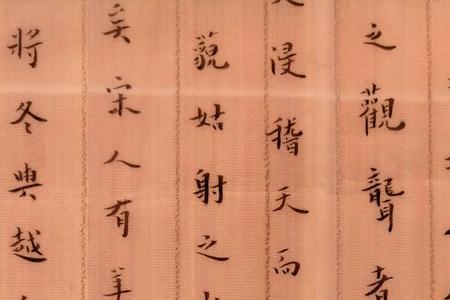 之觀聾者
浸稽天而
藐姑射之
矣宋人有
將冬與越